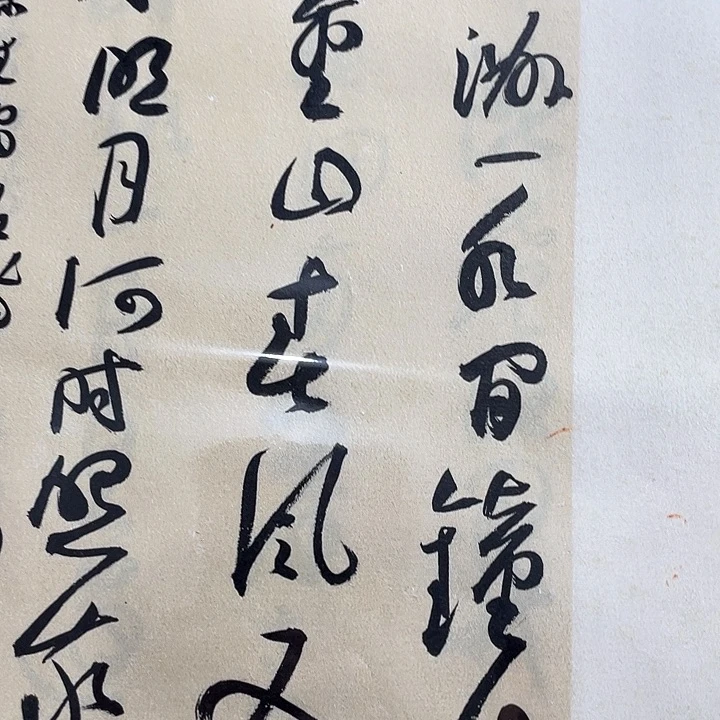 洲一水間鐘
重山春風又
明月何時照我